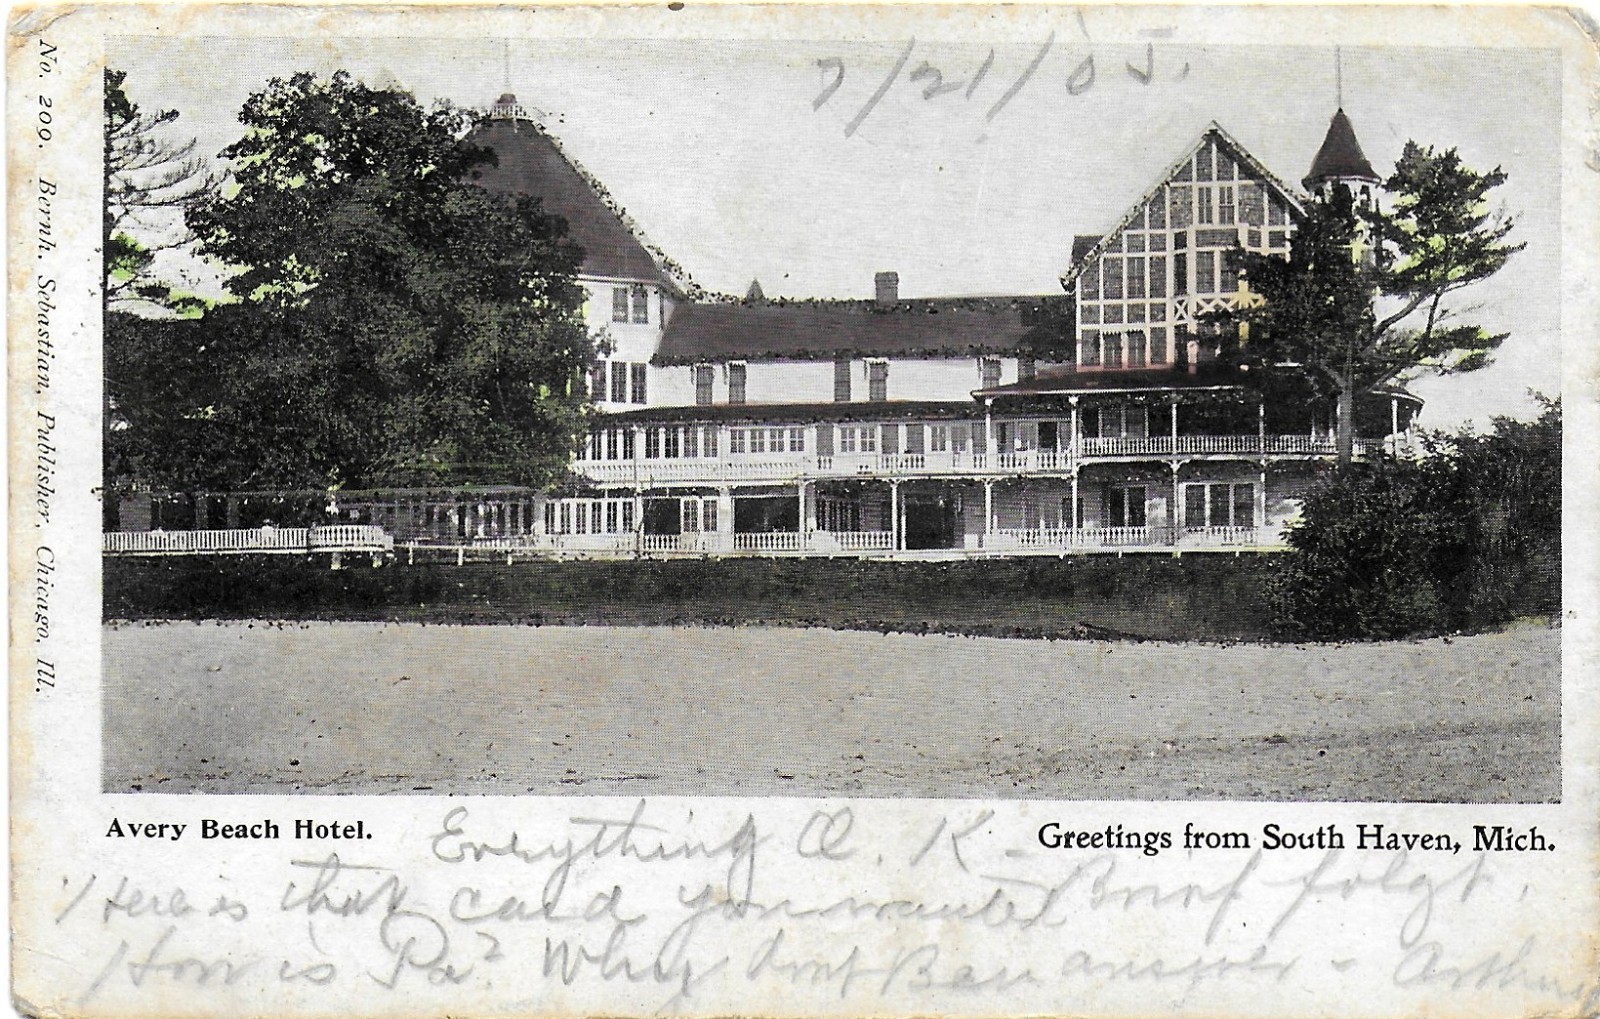 7/21/05.
No. 209. Bernh. Sebastian, Publisher, Chicago, Ill.
Avery Beach Hotel.
Greetings from South Haven, Mich.
Everything O. K. -
Here is that card you wanted Brief folgt.
How is Pa? Why dont Ben answer - Arthur